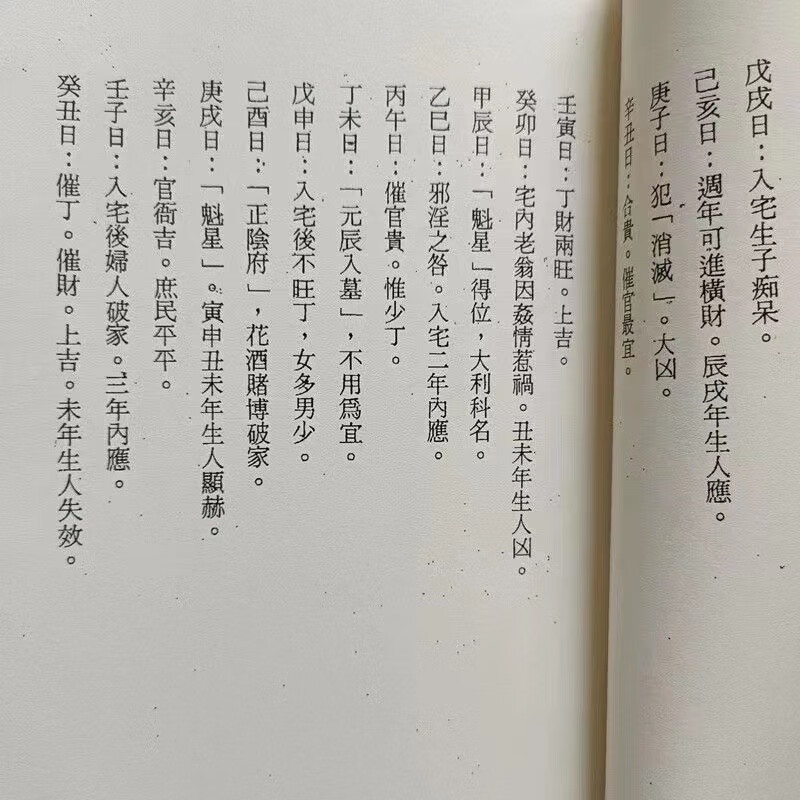 戊戌日：入宅生子痴呆。
己亥日：週年可進橫財。辰戌年生人應。
庚子日：犯「消滅」。大凶。
辛丑日：合貴。催官最宜。
壬寅日：丁財兩旺。上吉。
癸卯日：宅內老翁因姦情惹禍。丑未年生人凶。
甲辰日：「魁星」得位，大利科名。
乙巳日：邪淫之咎。入宅二年內應。
丙午日：催官貴。惟少丁。
丁未日：「元辰入墓」，不用爲宜。
戊申日：入宅後不旺丁，女多男少。
己酉日：「正陰府」，花酒賭博破家。
庚戌日：「魁星」。寅申丑未年生人顯赫。
辛亥日：官衙吉。庶民平平。
壬子日：入宅後婦人破家。三年內應。
癸丑日：催丁。催財。上吉。未年生人失效。